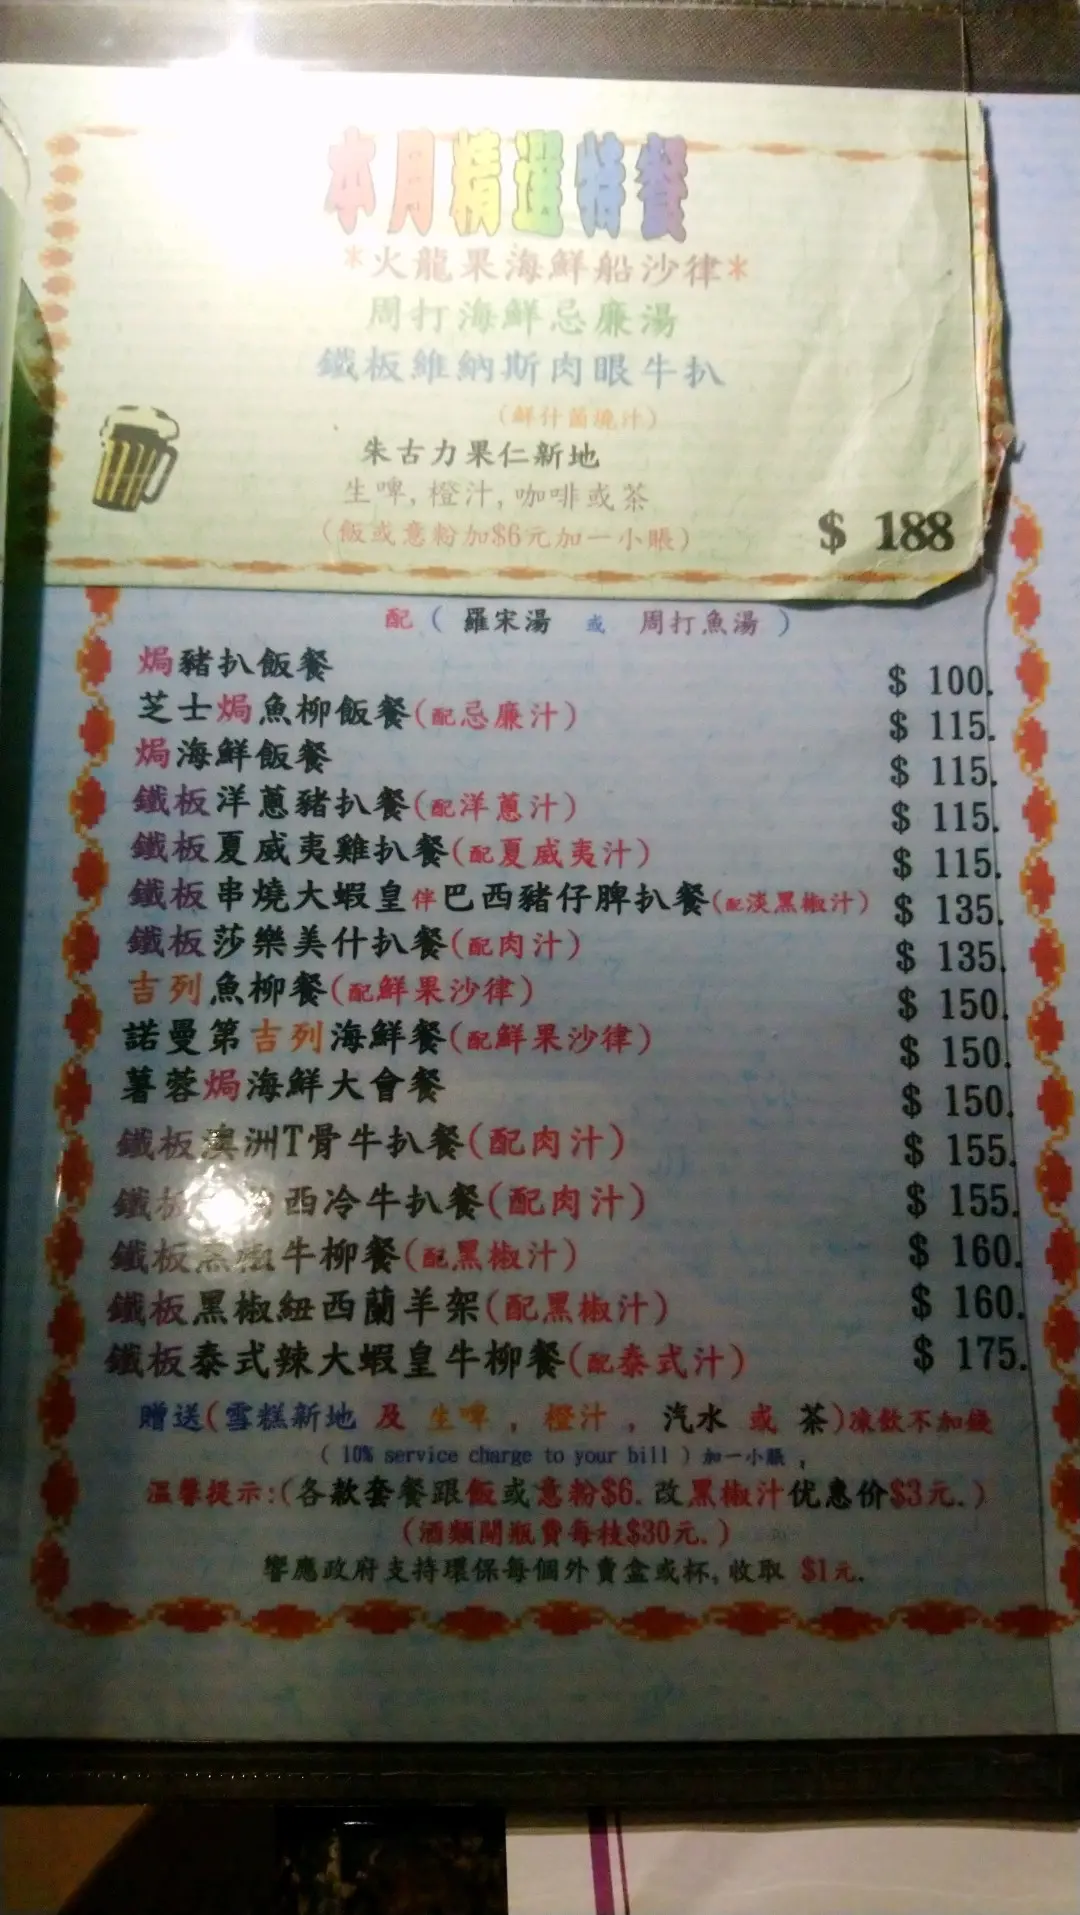 本月精選特餐
*火龍果海鮮船沙律*
周打海鮮忌廉湯
鐵板維納斯肉眼牛扒
(鮮什菌燒汁)
朱古力果仁新地
生啤,橙汁,咖啡或茶
(飯或意粉加$6元加一小賬)
$ 188
配 ( 羅宋湯 或 周打魚湯 )
焗豬扒飯餐 $ 100.
芝士焗魚柳飯餐(配忌廉汁) $ 115.
焗海鮮飯餐 $ 115.
鐵板洋蔥豬扒餐(配洋蔥汁) $ 115.
鐵板夏威夷雞扒餐(配夏威夷汁) $ 115.
鐵板串燒大蝦皇伴巴西豬仔脾扒餐(配淡黑椒汁) $ 135.
鐵板莎樂美什扒餐(配肉汁) $ 135.
吉列魚柳餐(配鮮果沙律) $ 150.
諾曼第吉列海鮮餐(配鮮果沙律) $ 150.
薯蓉焗海鮮大會餐 $ 150.
鐵板澳洲T骨牛扒餐(配肉汁) $ 155.
鐵板西冷牛扒餐(配肉汁) $ 155.
鐵板黑椒牛柳餐(配黑椒汁) $ 160.
鐵板黑椒紐西蘭羊架(配黑椒汁) $ 160.
鐵板泰式辣大蝦皇牛柳餐(配泰式汁) $ 175.
贈送(雪糕新地 及 生啤 , 橙汁 , 汽水 或 茶)凍飲不加錢
( 10% service charge to your bill ) 加一小賬 ,
溫馨提示:(各款套餐跟飯或意粉$6. 改黑椒汁优惠价$3元.)
(酒類開瓶費每枝$30元.)
響應政府支持環保每個外賣盒或杯,收取 $1元.